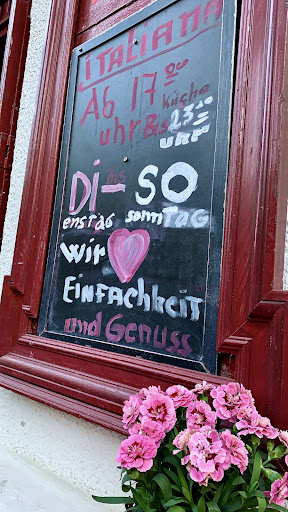 ITALIANA
Ab 17.00
uhr Bis Küche 23.00 uhr
Di- Bis SO
enstag sonnTAG
wir ♥
EinFAchkeit
und Genuss